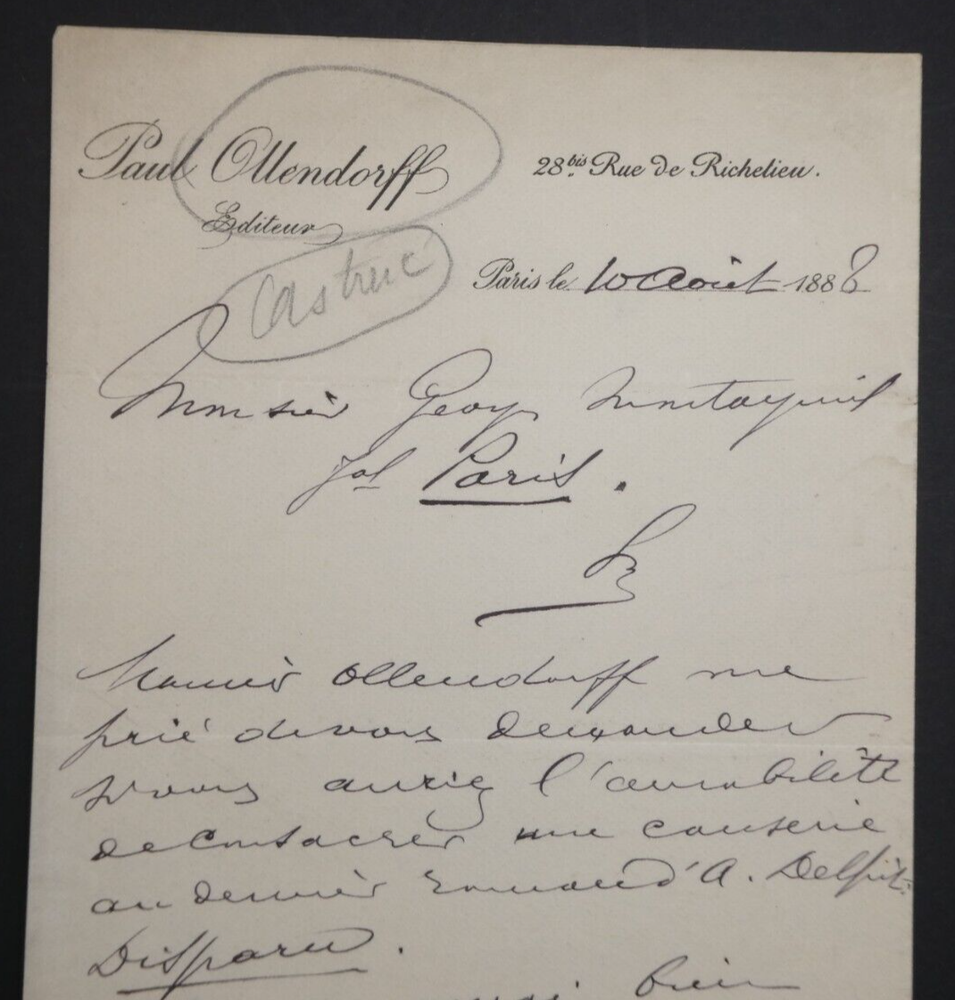 Paul Ollendorff
Editeur
28bis Rue de Richelieu.
Castruc
Paris le 10 Août 1888
Monsieur Georges Montorgueil
jal Paris.
Monsieur Ollendorff me
prie de vous demander
si vous auriez l'amabilité
de consacrer une causerie
au dernier roman d'A. Delpit:
Disparu.
bien